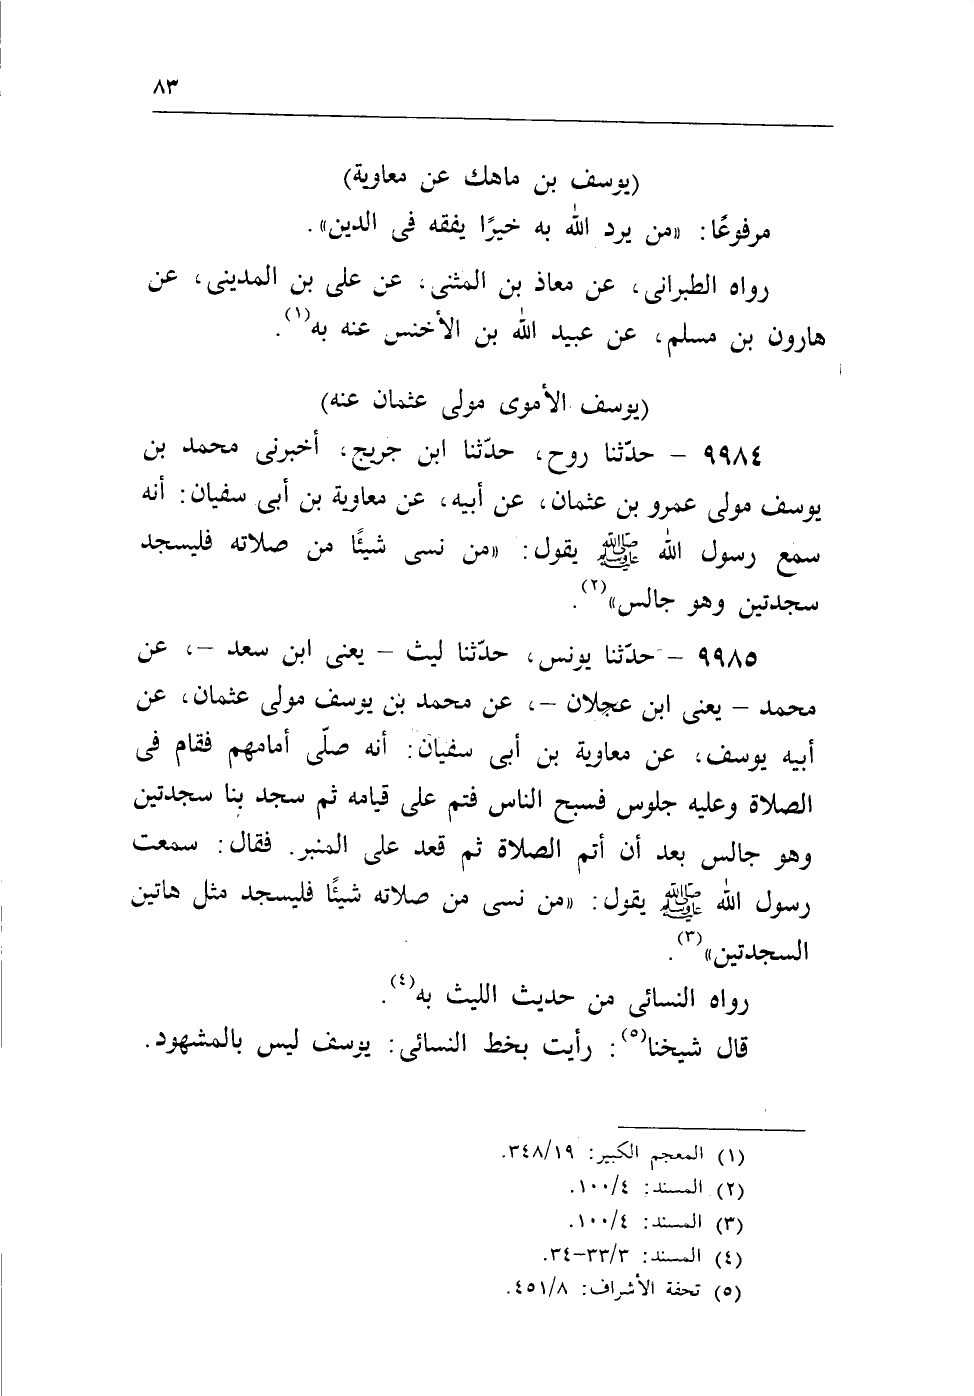 ٨٣
(يوسف بن ماهك عن معاوية)
مرفوعًا: «من يرد الله به خيرًا يفقه فى الدين».
رواه الطبرانى، عن معاذ بن المثنى، عن على بن المدينى، عن
هارون بن مسلم، عن عبيد الله بن الأخنس عنه به(١).
(يوسف الأموى مولى عثمان عنه)
٩٩٨٤ - حدّثنا روح، حدّثنا ابن جريج، أخبرنى محمد بن
يوسف مولى عمرو بن عثمان، عن أبيه، عن معاوية بن أبى سفيان: أنه
سمع رسول الله ﷺ يقول: «من نسى شيئًا من صلاته فليسجد
سجدتين وهو جالس»(٢).
٩٩٨٥ - حدّثنا يونس، حدّثنا ليث - يعنى ابن سعد -، عن
محمد - يعنى ابن عجلان -، عن محمد بن يوسف مولى عثمان، عن
أبيه يوسف، عن معاوية بن أبى سفيان: أنه صلّى أمامهم فقام فى
الصلاة وعليه جلوس فسبح الناس فتم على قيامه ثم سجد بنا سجدتين
وهو جالس بعد أن أتم الصلاة ثم قعد على المنبر. فقال: سمعت
رسول الله ﷺ يقول: «من نسى من صلاته شيئًا فليسجد مثل هاتين
السجدتين»(٣).
رواه النسائى من حديث الليث به(٤).
قال شيخنا(٥): رأيت بخط النسائى: يوسف ليس بالمشهود.
(١) المعجم الكبير: ٣٤٨/١٩.
(٢) المسند: ١٠٠/٤.
(٣) المسند: ١٠٠/٤.
(٤) المسند: ٣٣/٣-٣٤.
(٥) تحفة الأشراف: ٤٥١/٨.